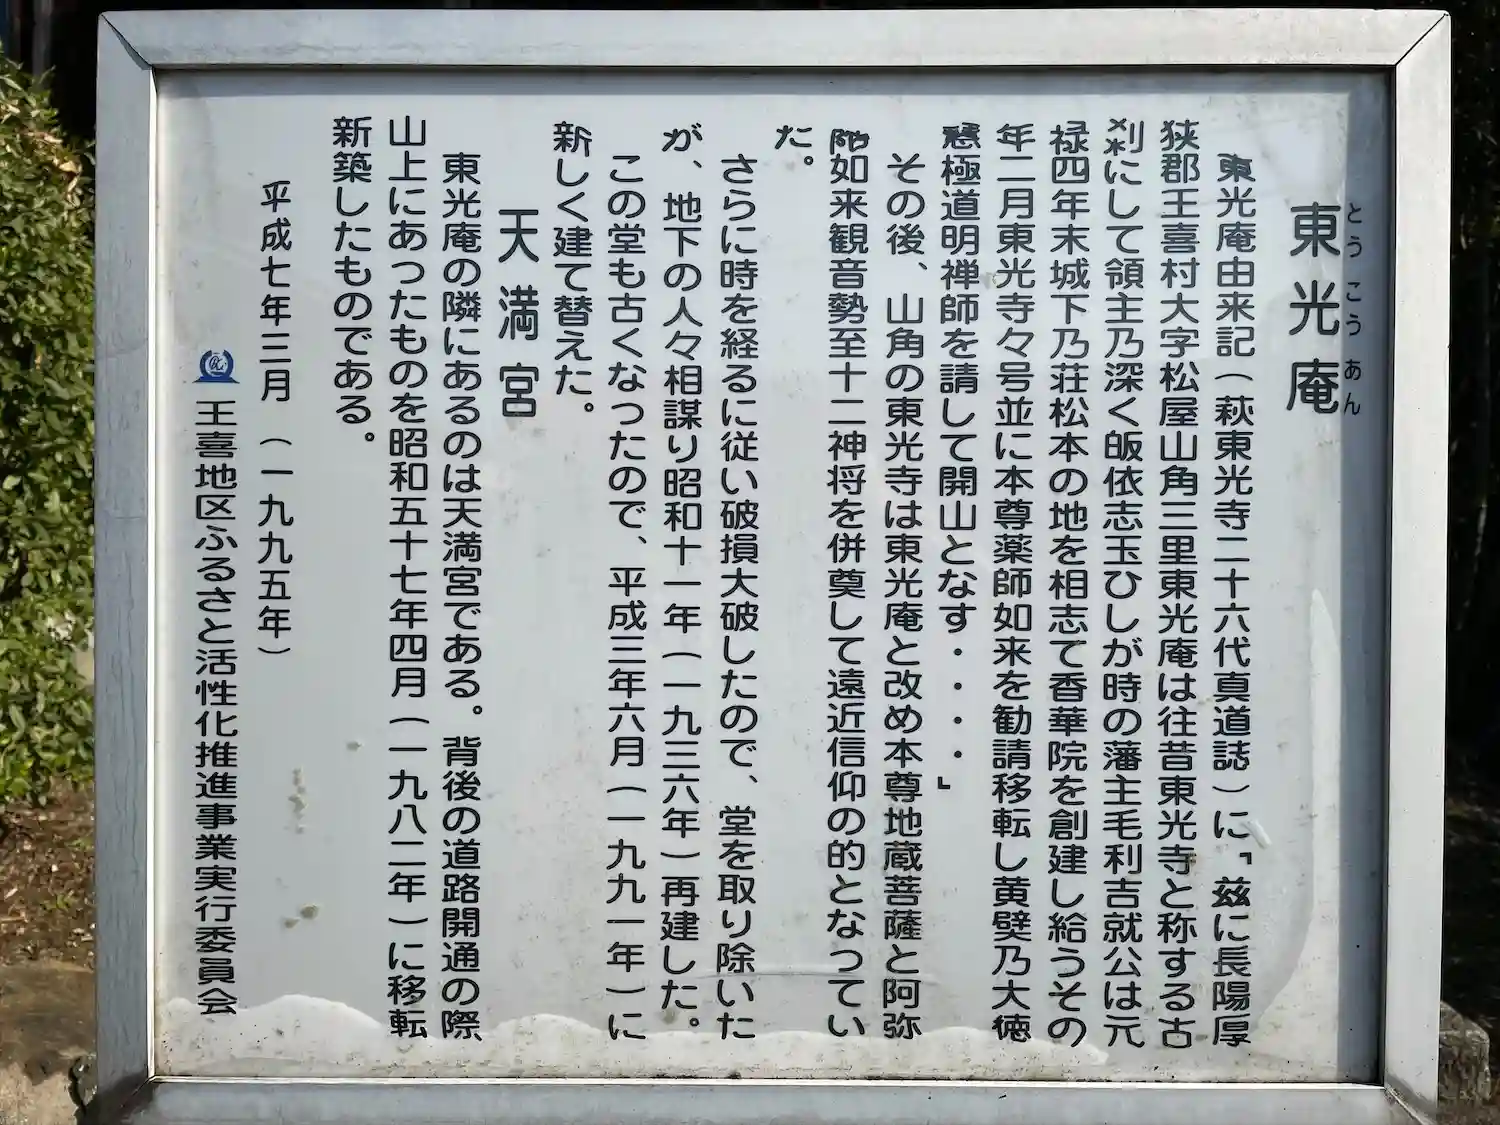 東光庵
とうこうあん
東光庵由来記(萩東光寺二十六代真道誌)に「茲に長陽厚
狭郡王喜村大字松屋山角三里東光庵は往昔東光寺と称する古
刹にして領主乃深く皈依志玉ひしが時の藩主毛利吉就公は元
禄四年末城下乃荘松本の地を相志て香華院を創建し給うその
年二月東光寺々号並に本尊薬師如来を勧請移転し黄檗乃大徳
慧極道明禅師を請して開山となす・・・・」
その後、山角の東光寺は東光庵と改め本尊地蔵菩薩と阿弥
陀如来観音勢至十二神将を併奠して遠近信仰の的となってい
た。
さらに時を経るに従い破損大破したので、堂を取り除いた
が、地下の人々相謀り昭和十一年(一九三六年)再建した。
この堂も古くなったので、平成三年六月(一九九一年)に
新しく建て替えた。
天満宮
東光庵の隣にあるのは天満宮である。背後の道路開通の際
山上にあったものを昭和五十七年四月(一九八二年)に移転
新築したものである。
平成七年三月(一九九五年)
王喜地区ふるさと活性化推進事業実行委員会